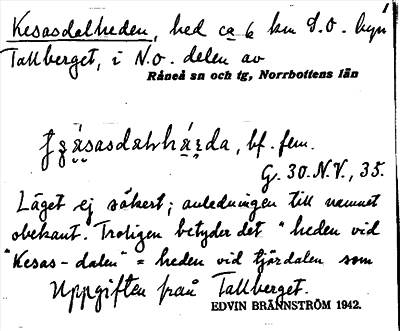 Kesasdalheden, hed ca 6 km S.O. byn
Tallberget, i N.O. delen av
Råneå sn och tg, Norrbottens län
bf. fem.
G. 30. N.V., 35.
Läget ej säkert; anledningen till namnet
obekant. Troligen betyder det "heden vid
"Kesas-dalen" = heden vid tjärdalen som
Uppgiften från Tallberget.
EDVIN BRÄNNSTRÖM 1942.